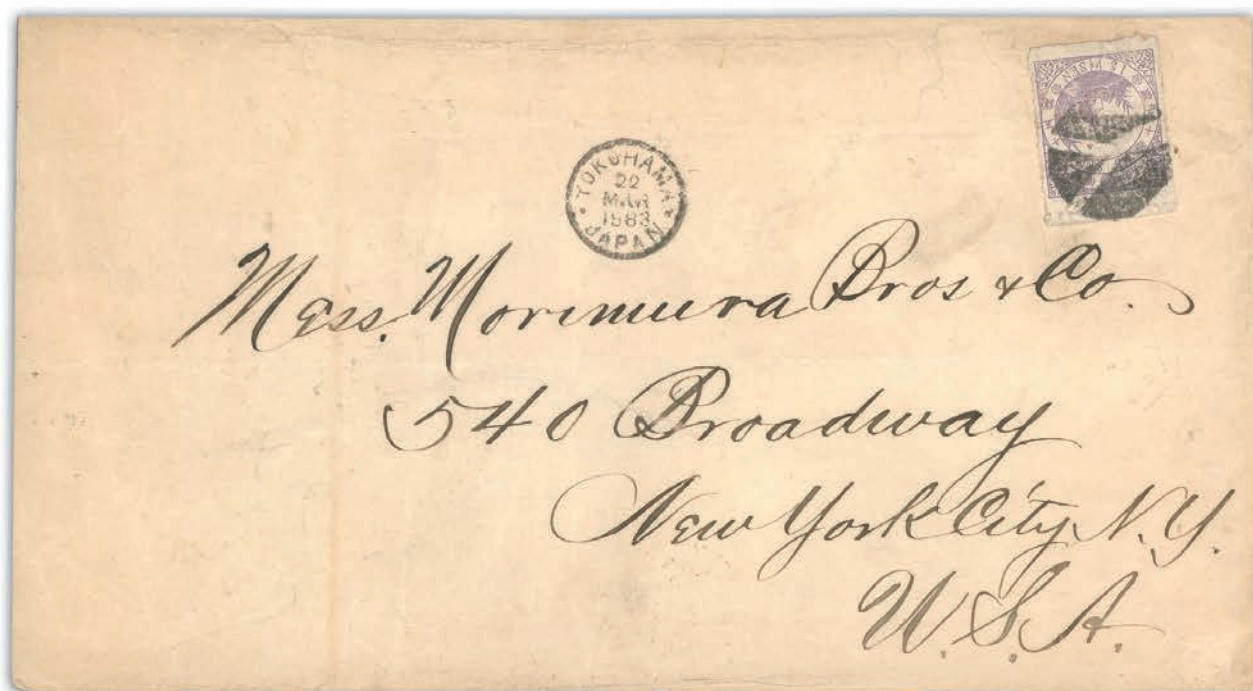 YOKOHAMA
22
MAR
1883
JAPAN
Mess. Morimura Bros & Co.
540 Broadway
New York City N.Y.
U.S.A.